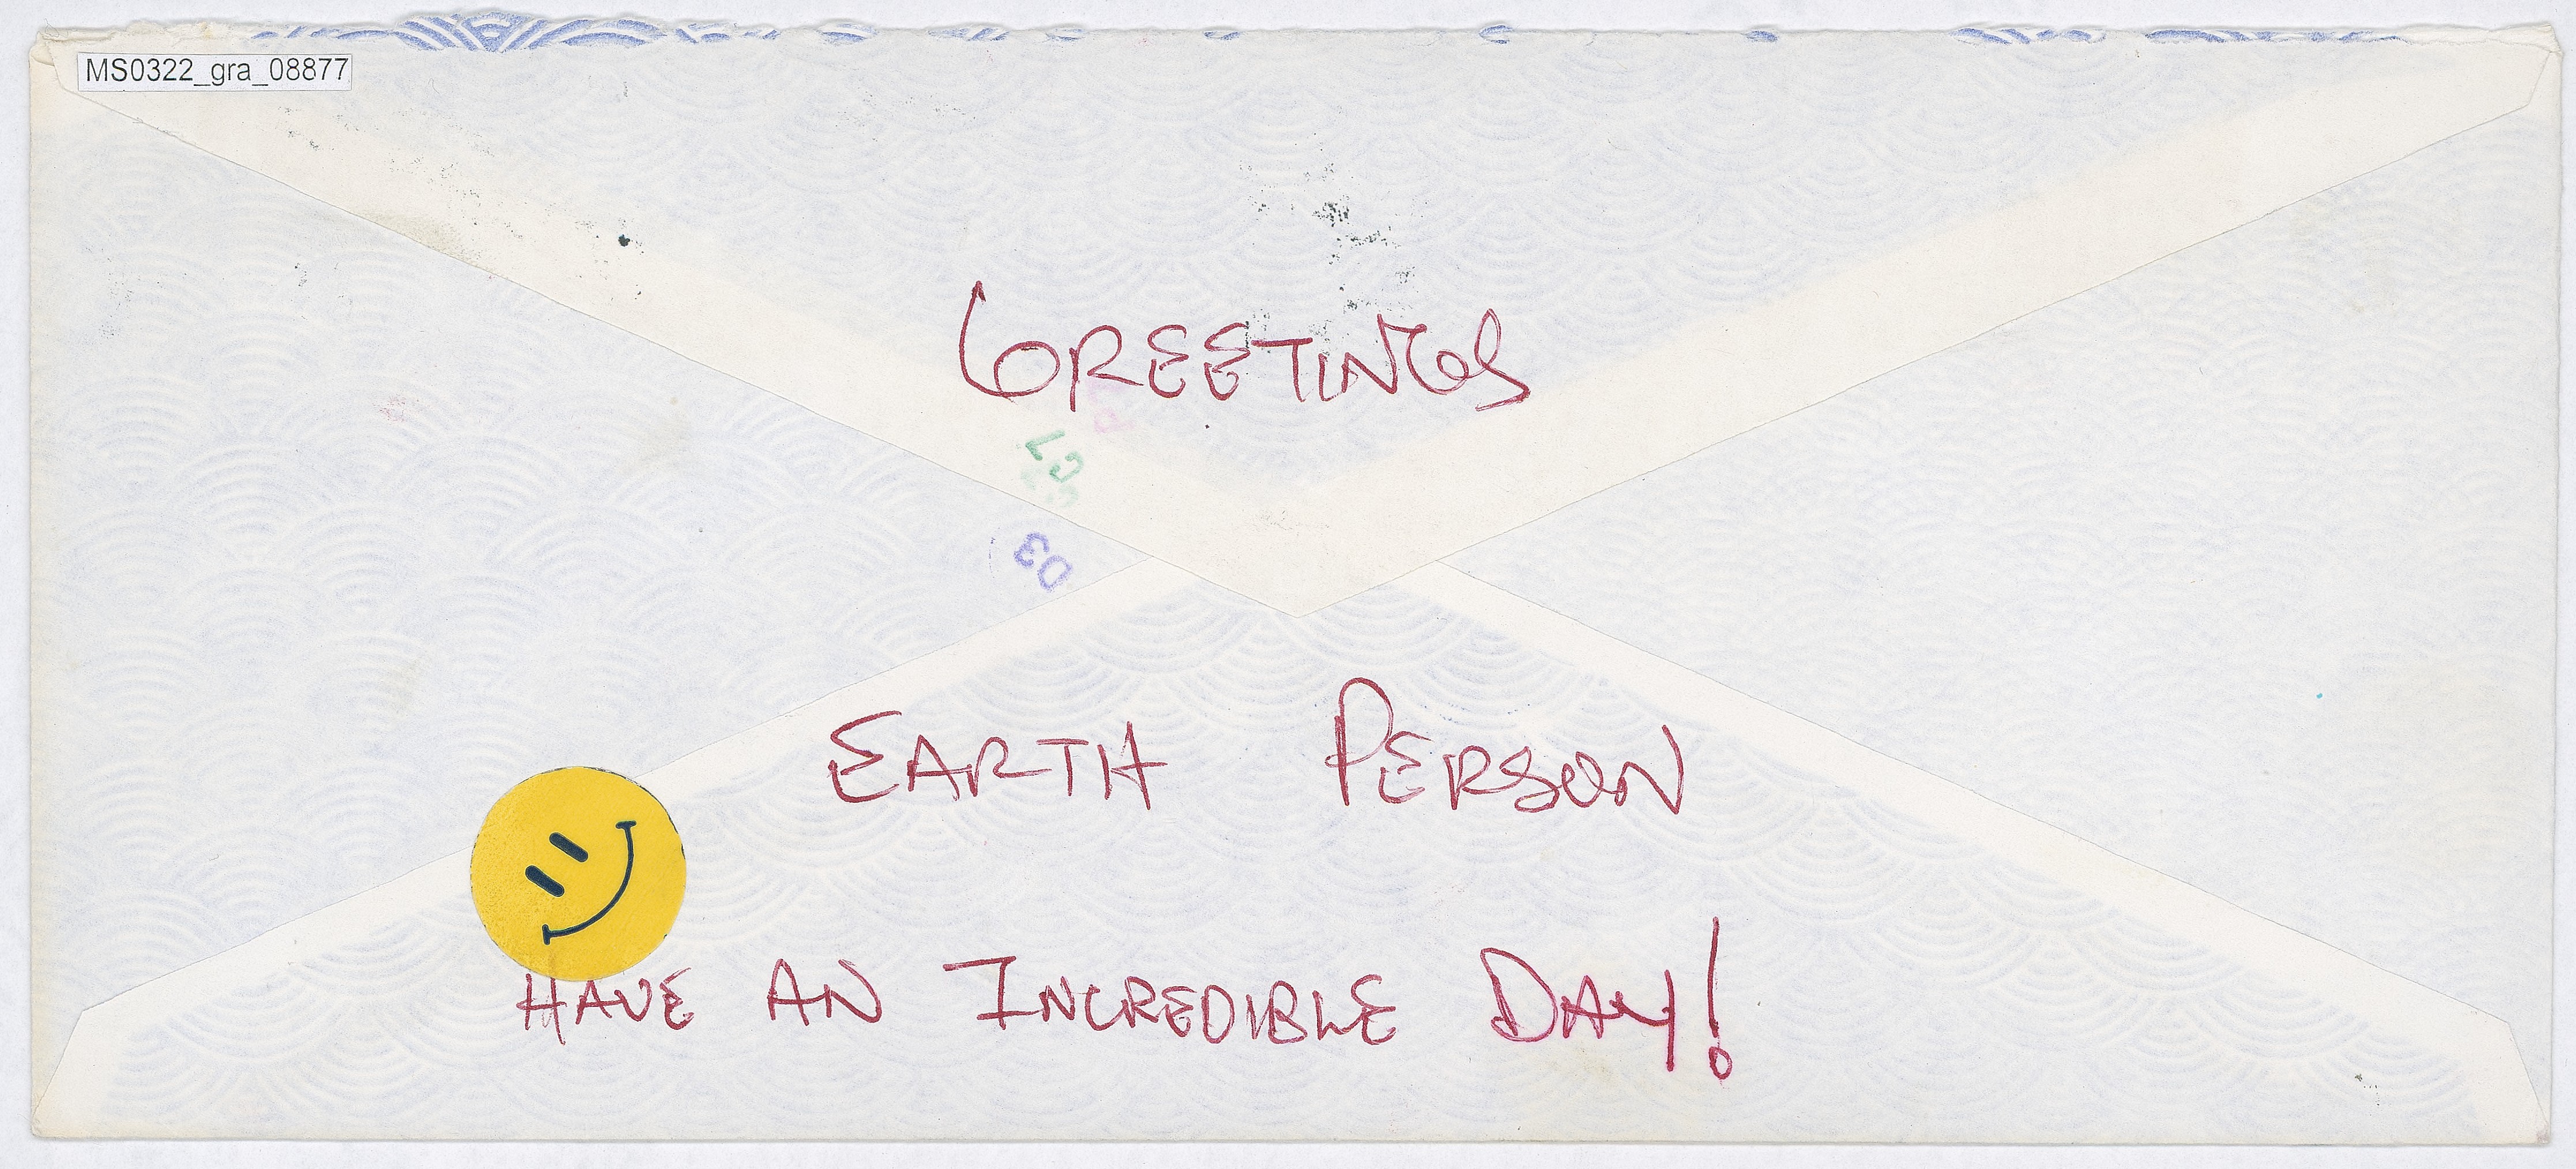 MS0322_gra_08877
GREETINGS
D3
EARTH PERSON
HAVE AN INCREDIBLE DAY!